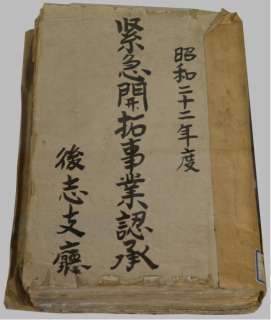 昭和二十二年度
緊急開拓事業認承
後志支廳